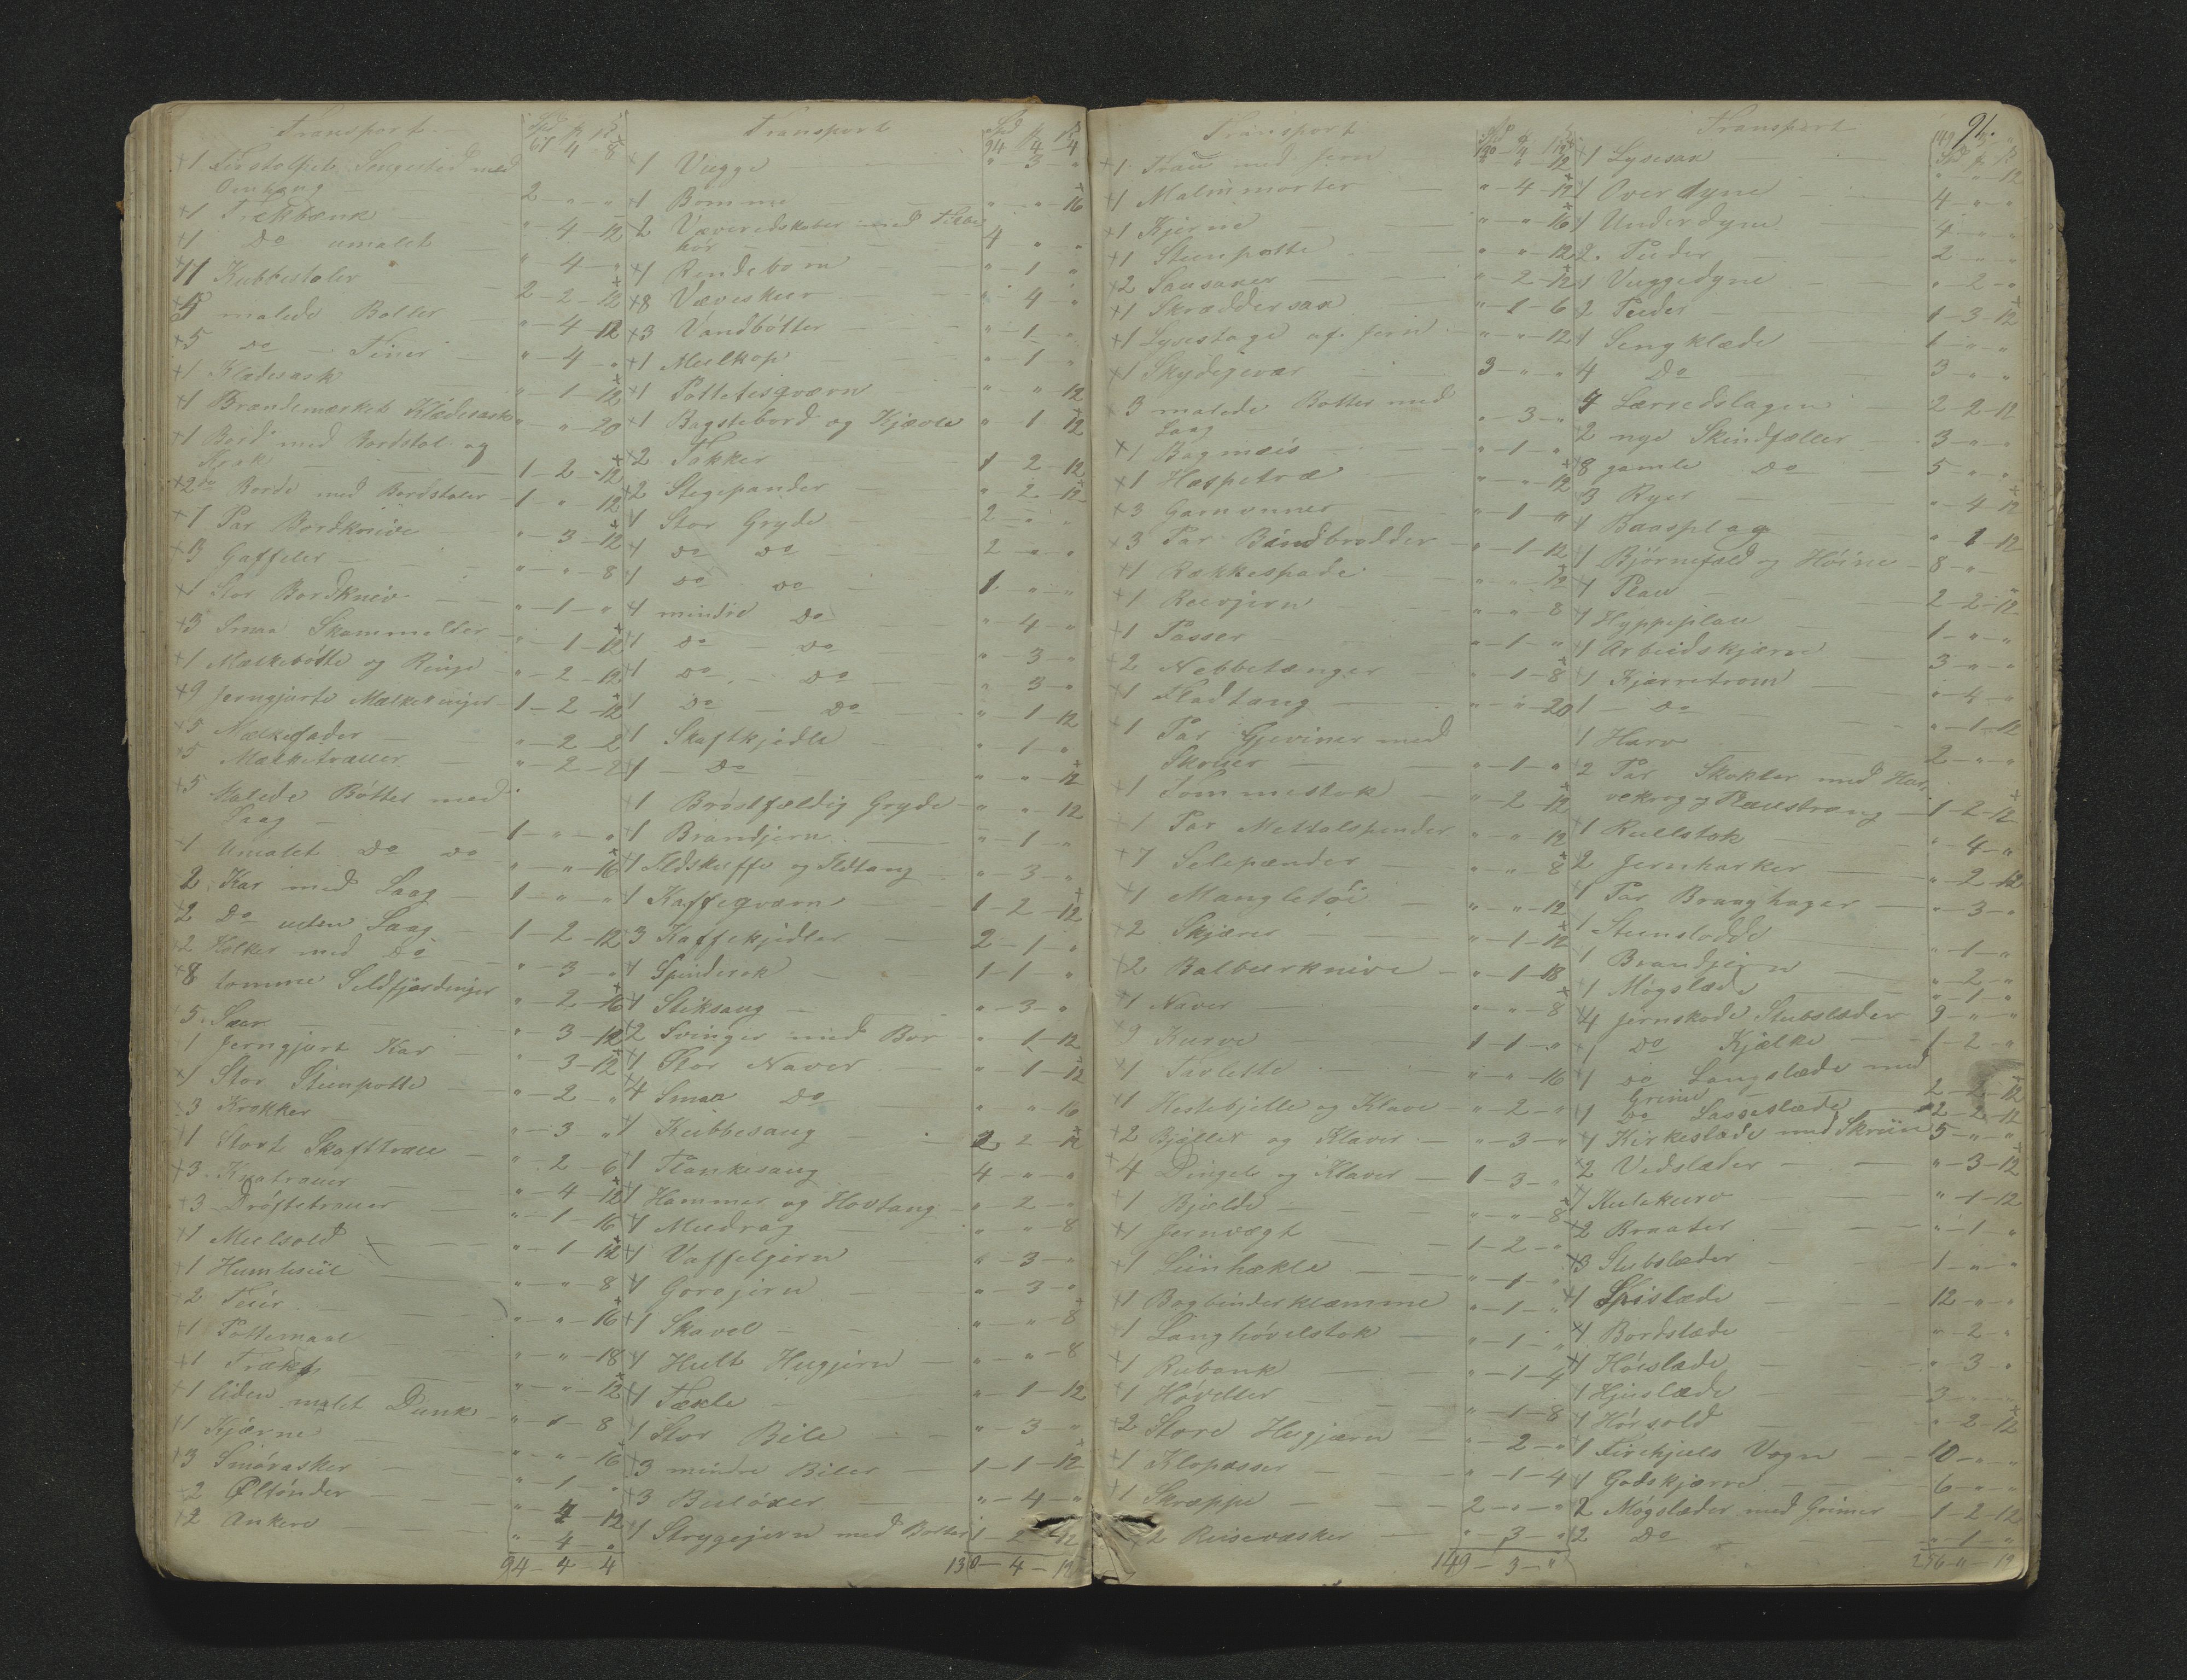 Transport
Spd ß
67 4 8
+1 Firstolpete Sengested med
Omhæng — 2 — " — "
+1 Trækbænk — " — 4 — 12
+1 Do umalet — " — 4 — "
11 Kubbestoler — 2 — 2 — 12
malede Boller — " — 4 — 12
+5 Do — Tiner — " — 4 — "
+1 Klædesask — " — 1 — 12
+1 Brændemærket Klædesask " — " — 20
+1 Bord med Bordstol og
1 — 2 — 12
+2 Borde med Bordstoler 1 — " — 12
+1 Par Bordknive — " — 3 — 12
+13 Gaffeler — " — " — 8
+1 Stor Bordkniv — " — 1 — "
+3 Smaa Skammelter — " — 1 — 12
+1 Mælkebøtte og Ringe — " — 2 — 12
+9 Jerngjorte Mælkeringer — 1 — 2 — 12
+5 Mælkefader — " — 2 — 2
+5 Mælketrauer — " — 2 — 2
+5 Malede Bøtter med
Laag — 1 — " — "
1 Umalet Do Do — " — " — 16
2 Kar med Laag — 1 — " — "
+2 Do uden Laag — 1 — 2 — 12
2 Holker med Do — " — 3 — "
+8 tomme Sildfjerdinger " — 2 — 16
5 Saer — " — 3 — 12
1 Jerngjort Kar — " — 3 — 12
+1 Stor Steenpotte — " — 2 — "
3 Krukker — " — 3 — "
+1 Stort Skafttrau — " — 2 — 6
+3 Knatrauer — " — 4 — 12
+3 Drøftetrauer — " — 1 — 16
+1 Meelsold — " — 1 — 12
+1 Humlesiil — " — " — 8
2 — " — " — 16
+1 Pottemaal — " — " — 18
+1 Trækt — " — " — 12
+1 liden malet Dunk — " — 1 — 8
+1 Kjærne — " — " — 16
+3 Smørasker — " — 1 — "
2 Øltønder — " — 4 — 12
+2 Ankere — " — 4 — "
94 — 4 — 4
Transport
Spd ß
94 4 4
+1 Vugge — " — 3 — "
+1 Bomme — " — " — 16
+2 Væveredskaber med Tilbe
hør — 4 — " — "
+1 Rendebom — " — 1 — "
+8 Væveskeer — " — 4 — "
+3 Vandbøtter — " — 1 — "
+1 Meelkop — " — 1 — "
+1 Pottetesqværn — " — " — 12
+1 Bagstebord og Kjævle " — 1 — 12
+2 Takker — 1 — 2 — 12
+2 Stegepander — " — 2 — 12
+1 Stor Gryde — 2 — " — "
+1 Do Do — 2 — " — "
+1 Do Do — 1 — " — "
+1 mindre Do — " — 4 — "
+1 Do — Do — " — 3 — "
+1 Do — Do — " — 3 — "
+1 Do — Do — " — 1 — 12
+1 Skaftkjedle — " — 1 — "
+1 — Do — " — " — 12
+1 Brøstfældig Gryde — " — " — 12
+1 Brandjern — " — 1 — "
+1 Ildskuffe og Ildtang — " — 3 — "
+1 Kaffeqværn — 1 — 2 — 12
3 Kaffekjedler — 2 — 1 — "
+1 Spinderok — 1 — 1 — "
+1 Stiksaug — " — 3 — "
+2 Svinger med Bor — " — 1 — 12
+1 Stor Naver — " — 1 — 12
+4 Smaa Do — " — " — 16
+1 Kubbesaug — 2 — 2 — 12
+1 Plankesaug — 4 — " — "
+1 Hammer og Hovtang — " — 2 — "
+1 Meedrag — " — " — 8
+1 Vaffeljern — " — 3 — "
+1 Gorojern — " — 3 — "
+1 Skavel — " — " — 8
+1 Hult Hugjern — " — " — 8
+1 Tæxle — " — 1 — 12
+1 Stor Bile — " — 3 — "
+3 mindre Biler — 1 — 1 — 12
+3 Buløxer — " — 4 — "
+1 Strygejern med Bolter 1 — 2 — 12
130 — 4 — 12
Transport
130 4 12
+1 Trau med Jern — " — " — 12
+1 Malmmorter — " — 4 — 12
+1 Kjerne — " — " — 16
+1 Steenpotte — " — " — 12
+2 Sausaxer — " — 2 — 12
+1 Skræddersax — " — 1 — 6
+1 Lysestage af Jern — " — " — 12
+1 Skydegevær — 3 — " — "
+3 malede Bøtter med
Laag — " — 3 — "
+1 Bagmeis — " — 1 — "
+1 Haspetræ — " — " — 12
+3 Garnvinner — " — 1 — "
+3 Par Bindbrodder — " — 1 — 12
+1 Rækkespade — " — " — 12
+1 Reevjern — " — " — 8
+1 Passer — " — 1 — "
+2 Nebbetænger — " — 1 — 8
+1 Fladtang — " — " — 20
+1 Par Gjeviner med
Skruer — " — 1 — "
+1 Tommestok — " — 2 — 12
1 Par Mettalspender — " — " — 12
+7 Selepænder — " — " — 8
+1 Mangletøi — " — " — 12
+2 Skjærer — " — 1 — 12
+2 Balbeerknive — " — 1 — 18
+1 Naver — " — " — 8
+9 Kurve — 1 — 1 — "
+1 Tavlette — " — " — 16
+1 Hestebjelle og Klave — " — 2 — "
+2 Bjøller og Klaver — " — 3 — "
+4 Dingel og Klaver — 1 — 3 — "
+1 Bjælde — " — " — 8
+1 Jernvægt — 1 — 2 — "
+1 Liinhækle — " — 1 — "
+1 Bogbinderklæmme — " — 1 — "
+1 Langhøvelstok — " — 1 — "
+1 Rubank — " — 1 — 4
+1 Høvelter — " — 1 — 8
+2 Store Hugjærn — " — 2 — "
+1 Klopasser — " — 1 — 4
+1 Skræppe — 2 — " — "
2 Reisevæsker — " — 3 — "
149 — 3 — "
91.
Transport
149 3 "
Spd ß
+1 Lysesax — " — " — 12
+1 Overdyne — 4 — " — "
+1 Underdyne — 4 — " — "
2 Puder — 2 — " — "
+1 Vuggedyne — " — 2 — "
+2 Puder — 1 — 3 — 12
+1 Sengklæde — 1 — " — "
4 Do — 3 — " — "
4 Lærredslagen — 2 — 2 — 12
+2 nye Skindfæller — 3 — " — "
+8 gamle Do — 5 — " — "
+3 Ryer — " — 4 — 12
+1 Baasplag — " — 1 — 12
+1 Bjørnefæld og Høine — 8 — " — "
+1 Plau — 2 — 2 — 12
+1 Hyppeplau — 1 — " — "
+1 Arbeidskjærre — 3 — " — "
+1 Kjærretrom — " — 4 — "
1 — Do — " — 1 — 12
1 Harv — 2 — " — "
+2 Par Skokler med Har
vekrog og Plaustræng — 1 — 2 — 12
+1 Rullstok — " — 4 — "
+2 Jernharker — " — 2 — 12
+1 Par Braaghager — " — 3 — "
+1 Steenslodde — " — 1 — "
1 Brandjern — " — 2 — "
+1 Møgslæde — " — 1 — "
+4 Jernskode Stubslæder 9 — " — "
+1 Do Kjælke — 1 — 2 — "
+1 Do Langslæde med
Grime — 2 — 2 — 12
+1 Do Lassesslæde — 2 — 2 — 12
+1 Kirkeslæde med Skriin 5 — " — "
+2 Vedslæder — " — 3 — 12
+1 Kulekurv — " — 1 — 12
+2 Braater — " — 1 — "
+3 Stubslæder — 1 — " — "
+1 Spislæde — 12 — " — "
+1 Bordslæde — " — 2 — "
+1 Høislæde — " — 3 — "
+1 Hjulslæde — 3 — " — "
+1 Hørsold — " — 2 — 12
+1 Firehjuls Vogn — 10 — " — "
+1 Godskjærre — 6 — " — "
2 Møgslæder med Grimer — 1 — 2 — 12
2 Do — " — 1 — "
256 " — 12